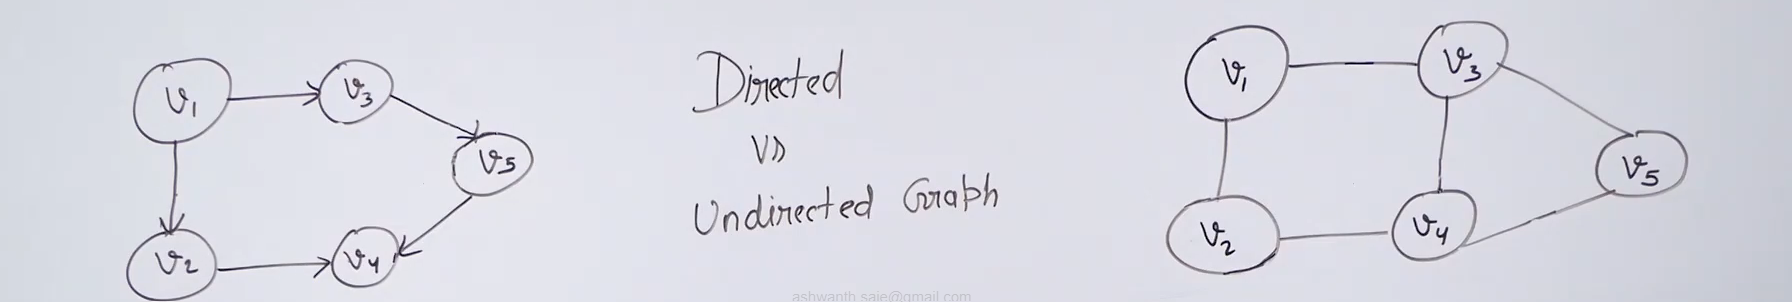 V₁
V₃
V₅
V₂
V₄
Directed
vs
Undirected Graph
V₁
V₃
V₅
V₂
V₄
ashwanth.saie@gmail.com